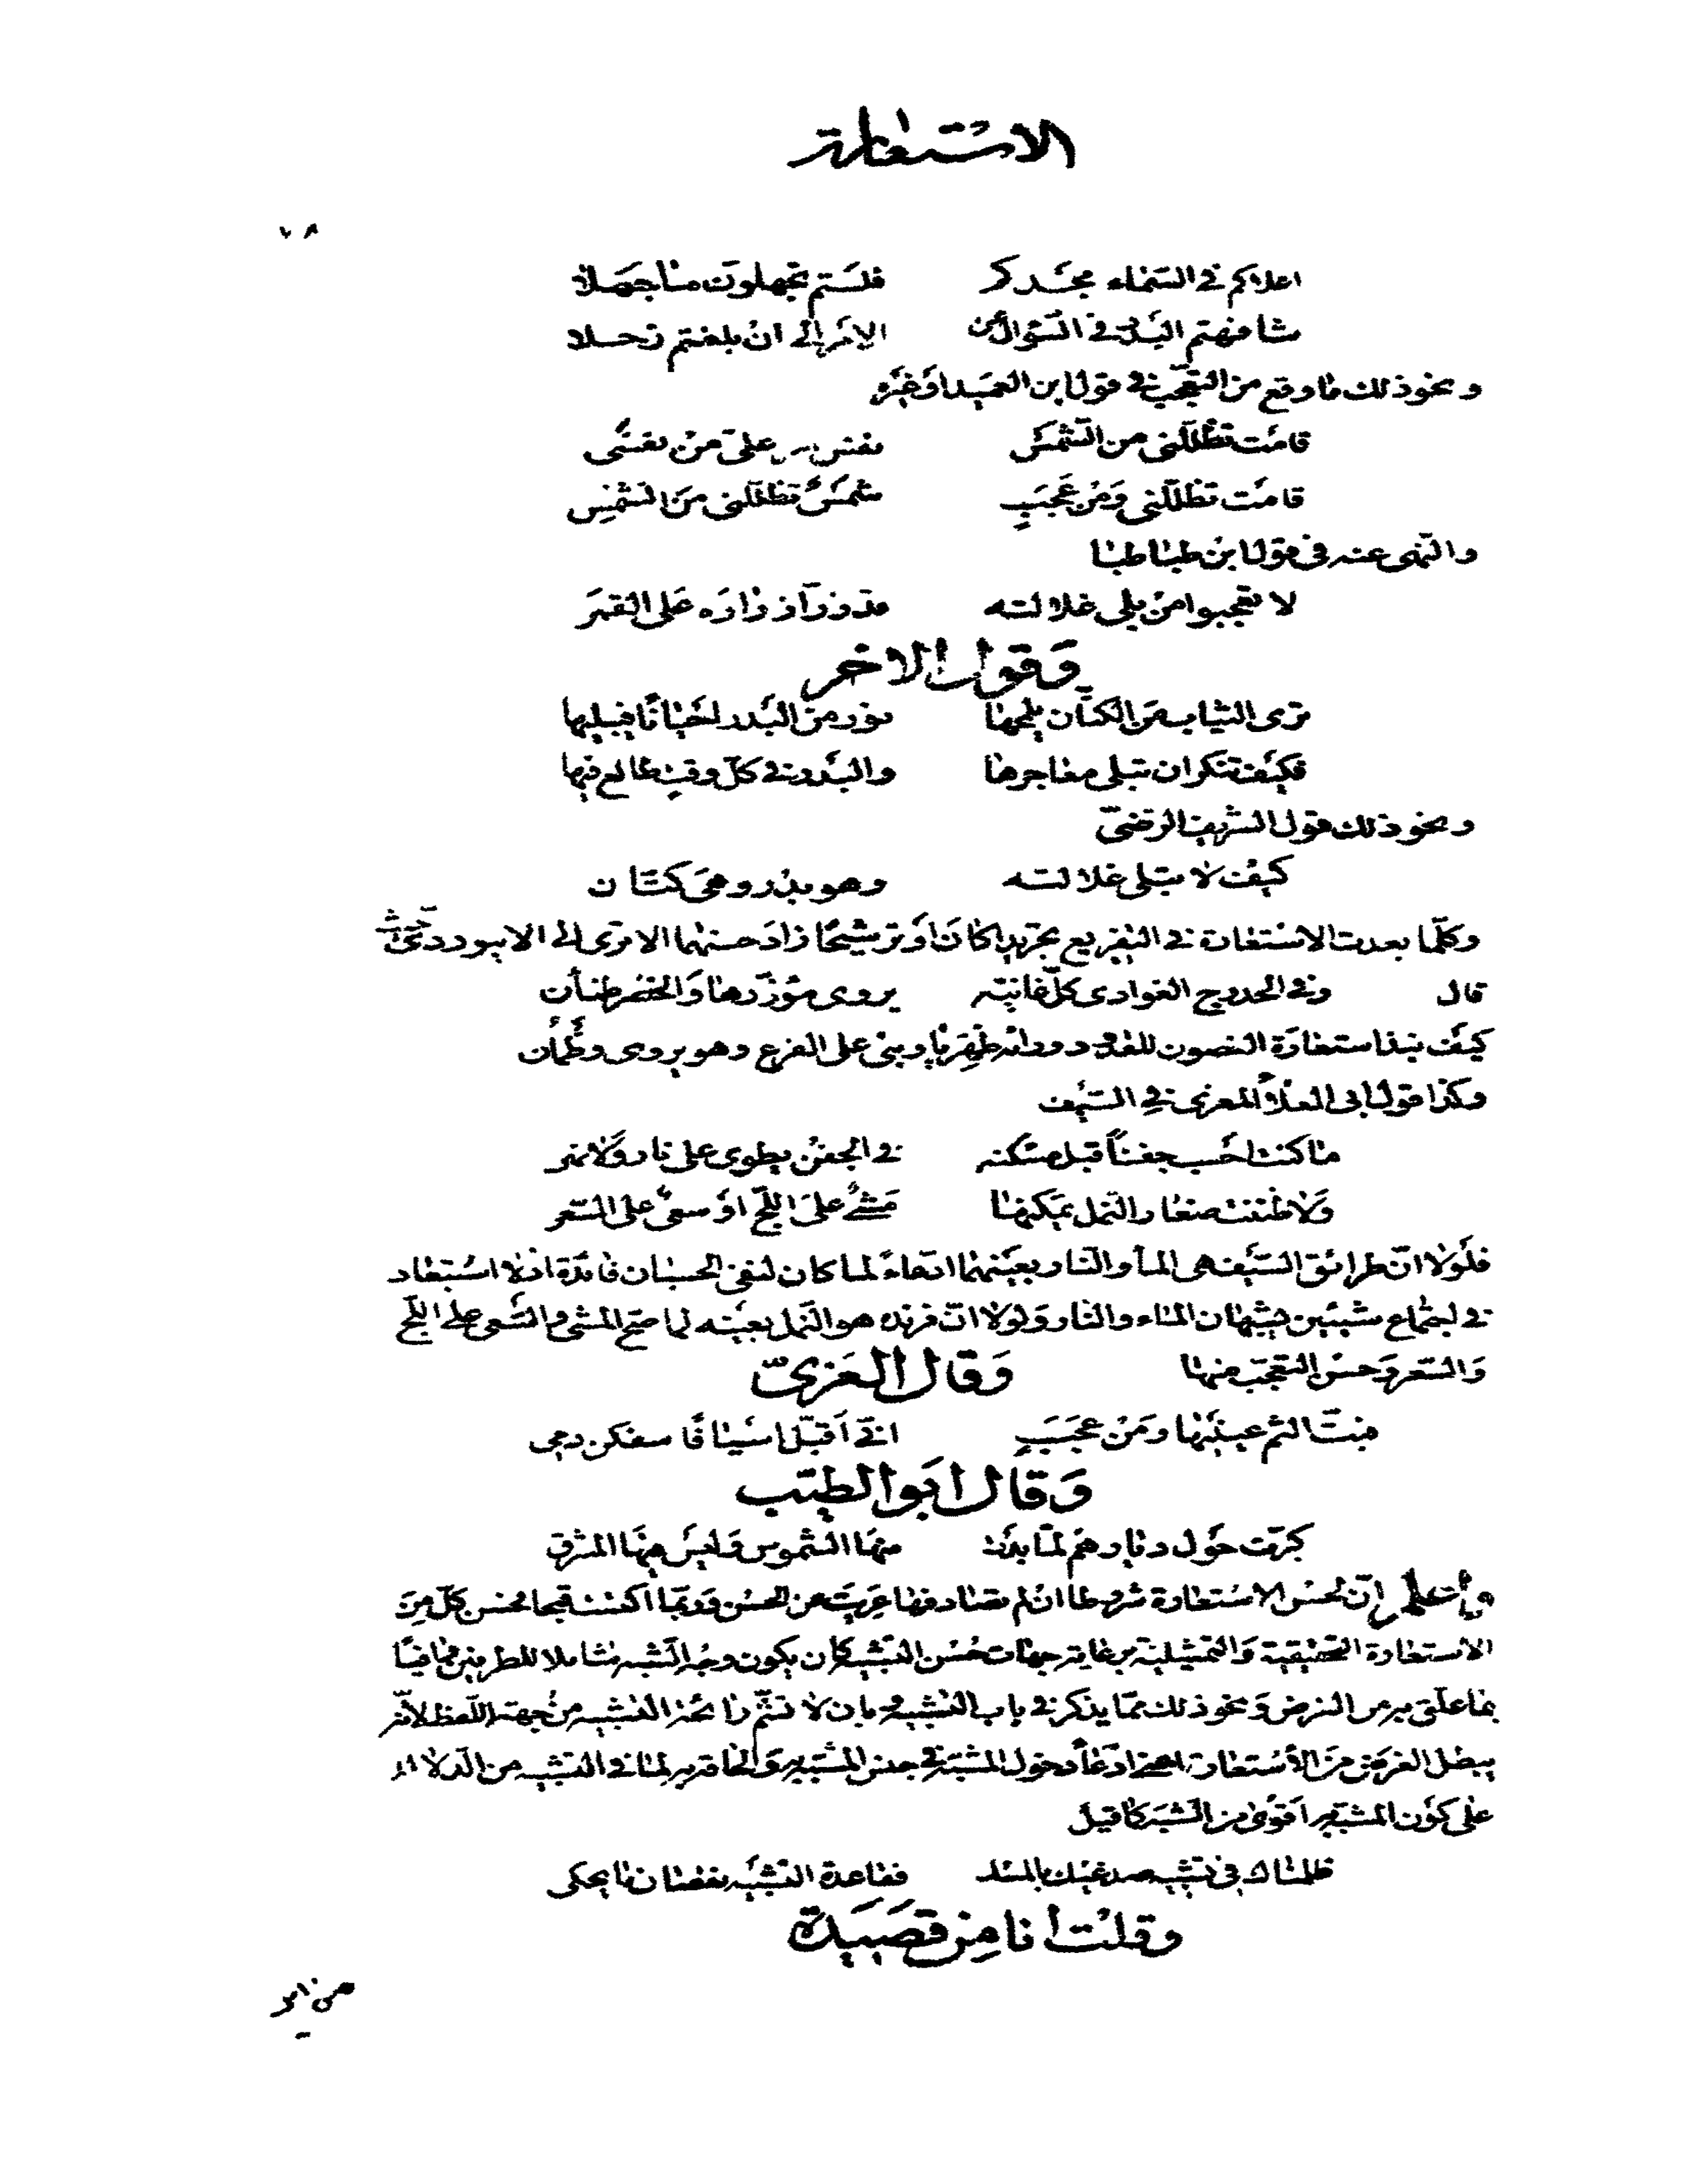 الاستعارة
٧٨
اعلاكم في السماء مجدكم فلستم تجهلون ما جهلا
شافهتم البدر في السؤال عن الامر الى ان بلغتم زحلا
ونحو ذلك ما وقع من التعجب في قول ابن العميد او غيره
قامت تظللني من الشمس نفس علي من نفسي
قامت تظللني ومن عجب شمس تظللني من الشمس
والنهي عنه في قول ابن طباطبا
لا تعجبوا من بلى غلالته قد زر ازراره على القمر
وقول الاخر
ترى الثياب من الكتان يلمحها نور من البدر احيانا فيبليها
فكيف تنكر ان تبلى معاجرها والبدر في كل وقت طالع فيها
ونحو ذلك قول الشريف الرضي
كيف لا تبلى غلالته وهو بدر وهي كتان
وكلما بعدت الاستعارة في التفريع تجريدا كان او ترشيحا زاد حسنها الا ترى الى الابيوردي حيث
قال وفي الحدوج الغوادي كل غانية يروى مؤزرها والخصر ظمآن
كيف نبذ استعارة الغصون للقدود ورائه ظهريا وبنى على الفرع وهو يروى وظمأن
وكذا قول ابي العلاء المعري في السيف
ما كنت احسب جفنا قبل مسكنه في الجفن يطوى على نار ولا نهر
ولا ظننت صغار النمل يمكنها مشي على اللج او سعي على السعر
فلولا ان طرائق السيف هي الماء والنار بعينهما ادعاء لما كان لنفي الحسبان فائدة اذ لا استبعاد
في اجتماع شيئين يشبهان الماء والنار ولولا ان فرنده هو النمل بعينه لما صح المشي والسعي على اللج
والسعر وحسن التعجب منها وقال الغزي
فبت الثم عينيها ومن عجب اني اقبل اسيافا سفكن دمي
وقال ابو الطيب
كبرت حول ديارهم لما بدت منها الشموس وليس فيها المشرق
واعلم ان لحسن الاستعارة شروطا ان لم تصادفها عريت عن الحسن وربما اكتست قبحا فحسن كل من
الاستعارة التحقيقية والتمثيلية برعاية جهات حسن التشبيه كان يكون وجه الشبه شاملا للطرفين وافيا
بما علق به من الغرض ونحو ذلك مما يذكر في باب التشبيه وبان لا تشم رائحة التشبيه من جهة اللفظ لانه
يبطل الغرض من الاستعارة اعني ادعاء دخول المشبه في جنس المشبه به والحاقه به لما في التشبيه من الدلالة
على كون المشبه به اقوى من المشبه كما قيل
ظلمناك في تشبيه صدغيك بالمسك فقاعدة التشبيه نقصان ما يحكى
وقلت انا من قصيدة